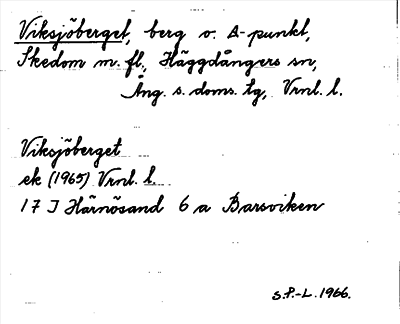 Viksjöberget, berg o. Δ-punkt,
Skedom m. fl., Häggdångers sn,
Ång. s. doms. tg, Vrnl. l.
Viksjöberget
ek (1965) Vrnl. l.
17 J Härnösand 6 a Barsviken
S.P.-L. 1966.